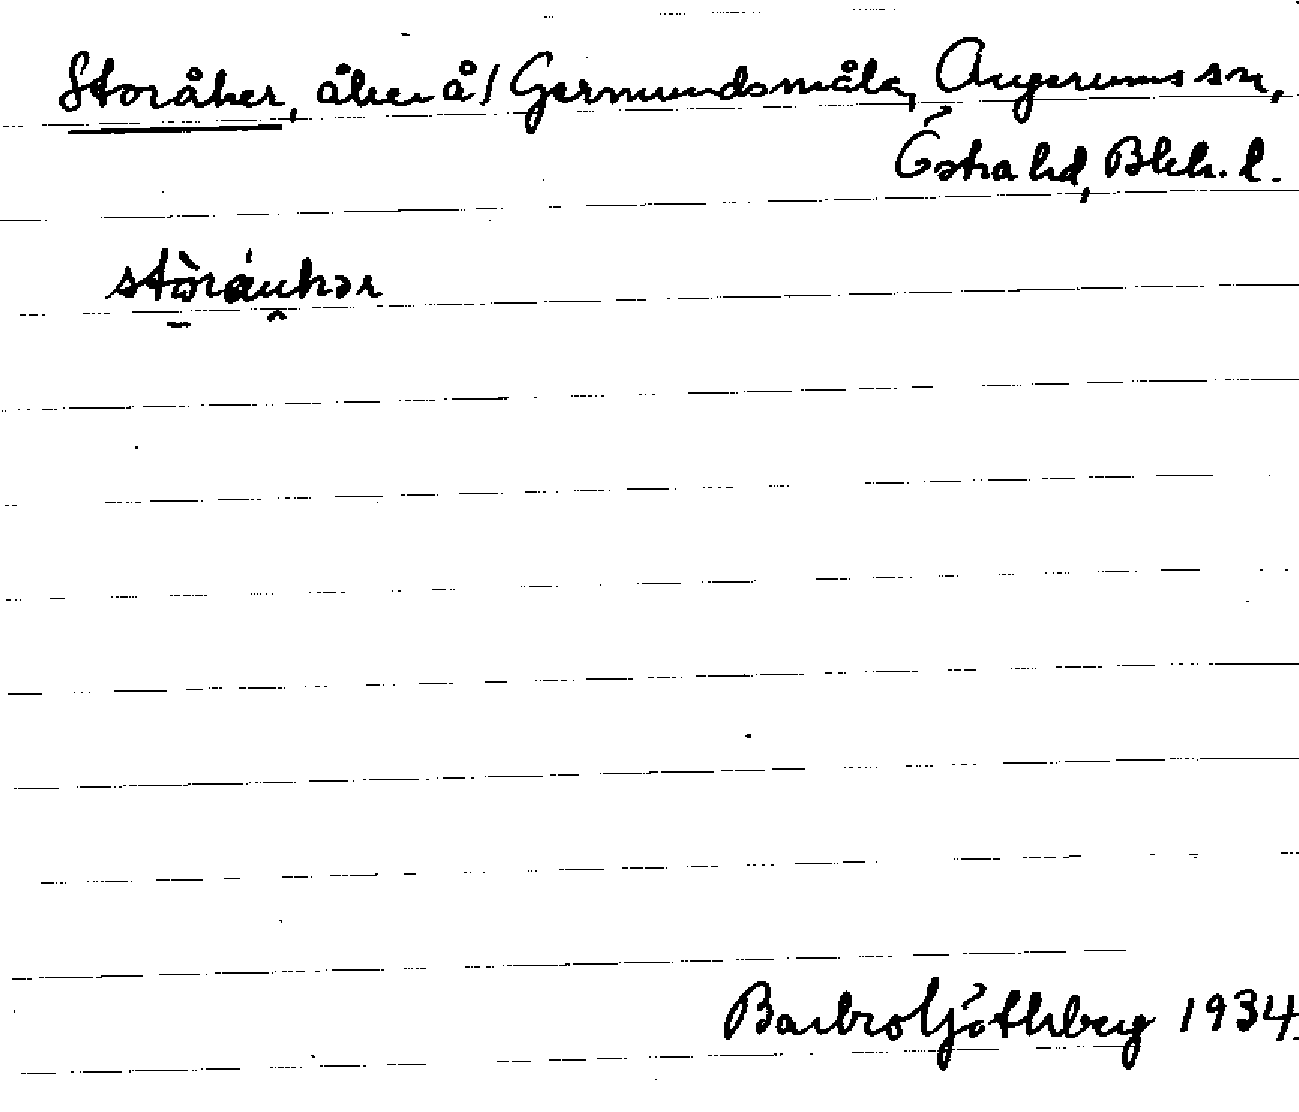 Storåker, åker å/ Germundsmåla, Augerums sn,
Östra hd, Blek. l.
stòráukər
Barbro Göthberg 1934.